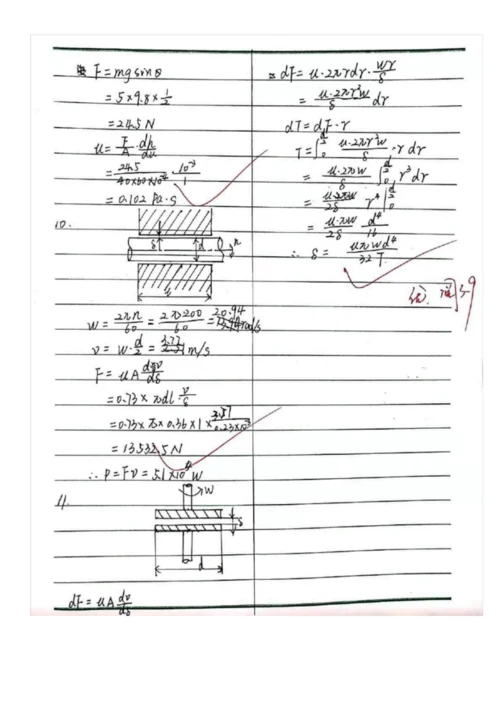 F = mg sinθ
= 5×9.8×½
= 24.5 N
u = F/A · dh/du
= 24.5/(40×60×10⁻⁴) · 10⁻³/1
= 0.102 Pa·s
10.
δ d n
L
w = 2πn/60 = 2π·200/60 = 20.94 rad/s
v = w·d/2 = 3.77 m/s
F = uA dv/dδ
= 0.73 × πdl · v/δ
= 0.73×π×0.36×1× /0.23×10⁻³
= 13532.5 N
∴ P = Fv = 5.1×10⁴ W
11.
w
δ
d
dF = uA dv/dδ
= dF = u·2πrdr · wr/δ
= u·2πr²w/δ dr
dT = dF·r
T = ∫₀^(d/2) u·2πr²w/δ · r dr
= u·2πw/δ ∫₀^(d/2) r³ dr
= u·2πw/2δ r⁴ |₀^(d/2)
= u·πw/2δ · d⁴/16
∴ δ = uπwd⁴/32T